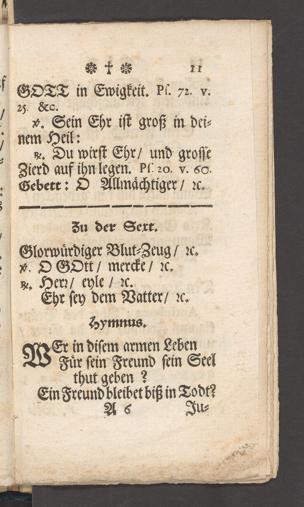 ❉ ✝ ❉ 11
GOTT in Ewigkeit. Ps. 72. v.
25. &c.
℣. Sein Ehr ist groß in dei-
nem Heil:
℟. Du wirst Ehr/ und grosse
Zierd auf ihn legen. Ps. 20. v. 60.
Gebett: O Allmächtiger/ ꝛc.
Zu der Sext.
Glorwürdiger Blut-Zeug/ ꝛc.
℣. O GOtt/ mercke/ ꝛc.
℟. Herꝛ/ eyle/ ꝛc.
Ehr sey dem Vatter/ ꝛc.
Hymnus.
WEr in disem armen Leben
Für sein Freund sein Seel
thut geben?
Ein Freund bleibet biß in Todt?
A 6 Ju-